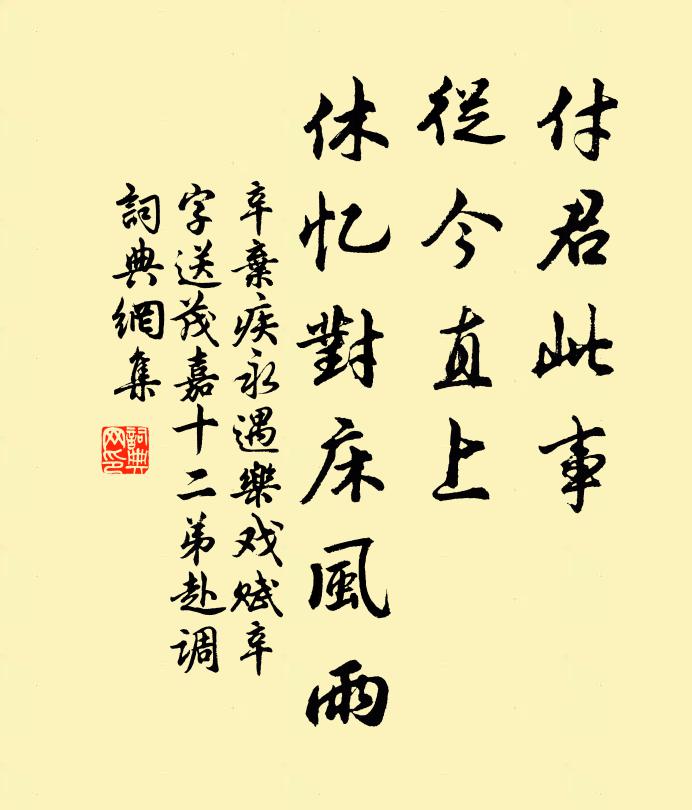 付君此事
從今直上
休忆對床風雨
辛棄疾永遇樂戏赋辛
字送茂嘉十二弟赴调
詞典網集
詞典网印